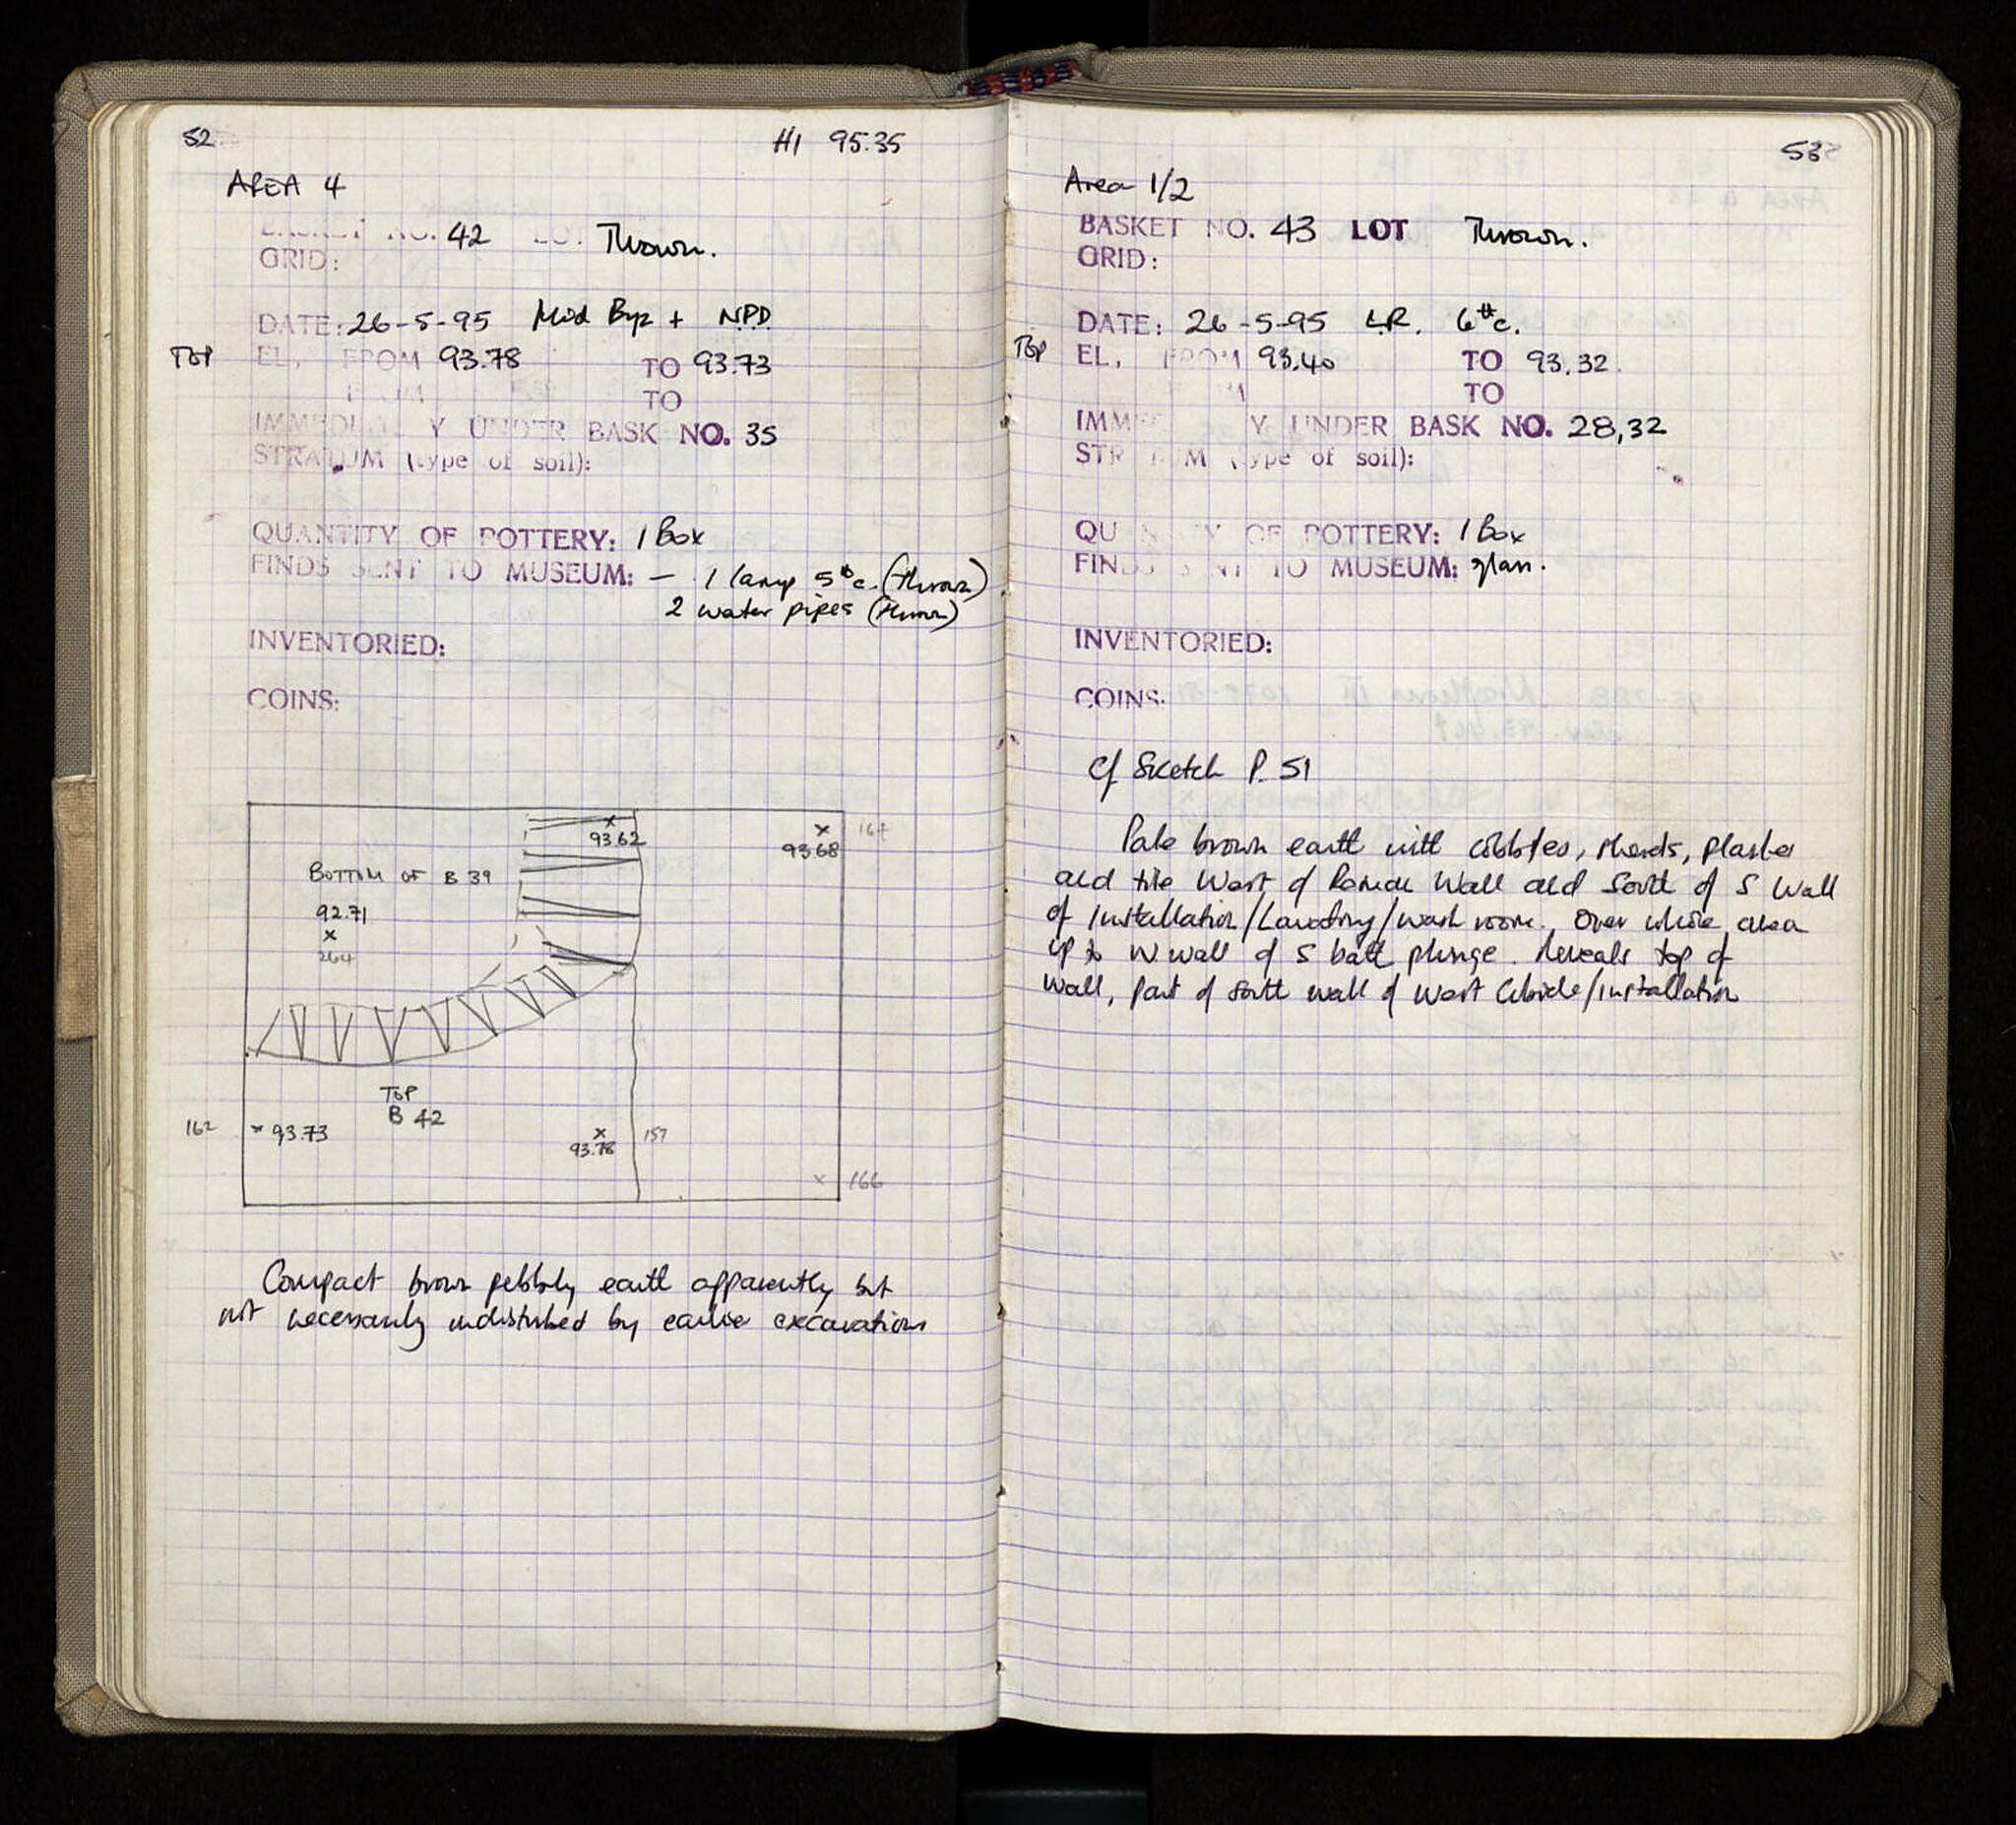 52
H1 95.35
AREA 4
BASKET NO. 42 LOT Thrown.
GRID:
DATE: 26-5-95 Mid Byz + NPD
TOP EL, FROM 93.78 TO 93.73
FROM TO
IMMEDIATELY UNDER BASK NO. 35
STRATUM (type of soil):
QUANTITY OF POTTERY: 1 Box
FINDS SENT TO MUSEUM: — 1 lamp 5th c. (thrown)
2 water pipes (thrown)
INVENTORIED:
COINS:
93.62
93.68
164
BOTTOM OF B 39
92.71
264
TOP
B 42
162
93.73
93.78
157
166
Compact brown pebbly earth apparently but
not necessarily undisturbed by earlier excavations
53
Area 1/2
BASKET NO. 43 LOT Thrown.
GRID:
DATE: 26-5-95 LR. 6th c.
TOP EL, FROM 93.40 TO 93.32.
FROM TO
IMMEDIATELY UNDER BASK NO. 28,32
STRATUM (type of soil):
QUANTITY OF POTTERY: 1 Box
FINDS SENT TO MUSEUM: glass.
INVENTORIED:
COINS:
Cf Sketch P. 51
Pale brown earth with cobbles, sherds, plaster
and tile West of Roman Wall and South of S Wall
of Installation/Lavatory/wash room. Over whole area
up to W wall of S bath plunge. Reveals top of
wall, part of south wall of West Cubicle/installation